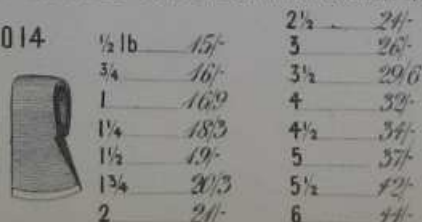 014
½ lb 15/-
¾ 16/-
1 16/9
1¼ 18/3
1½ 19/-
1¾ 20/3
2 21/-
2½ 24/-
3 26/-
3½ 29/6
4 32/-
4½ 34/-
5 37/-
5½ 42/-
6 44/-